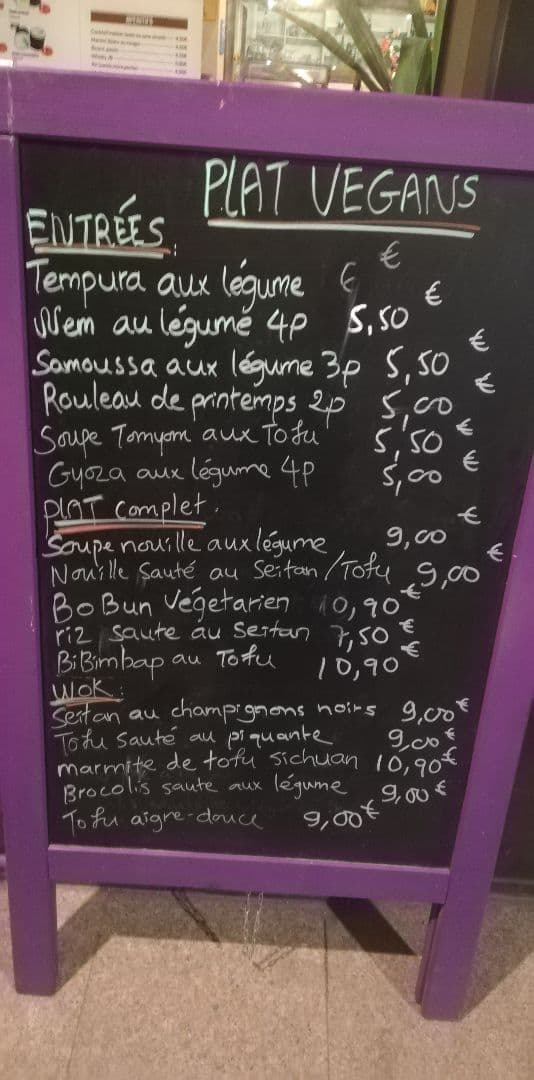 APÉRITIFS
PLAT VEGANS
ENTRÉES:
Tempura aux légume 6 €
Nem au légume 4p 5,50 €
Samoussa aux légume 3p 5,50 €
Rouleau de printemps 2p 5,00 €
Soupe Tomyom aux Tofu 5,50 €
Gyoza aux légume 4p 5,00 €
PLAT Complet:
Soupe nouille aux légume 9,00 €
Nouille Sauté au Seitan/Tofu 9,00 €
BoBun Végetarien 10,90 €
riz saute au Seitan 7,50 €
BiBimbap au Tofu 10,90 €
WOK:
Seitan au champignons noirs 9,00 €
Tofu Sauté au piquante 9,00 €
marmite de tofu sichuan 10,90 €
Brocolis saute aux légume 9,00 €
Tofu aigre-douce 9,00 €